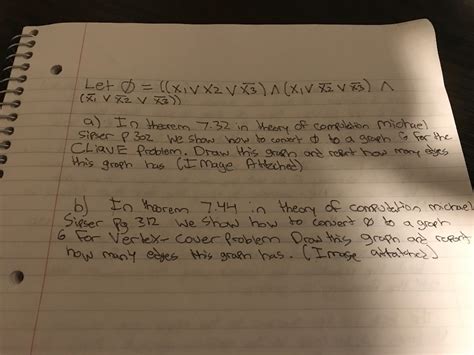 Let Ø = ((x1 ∨ x2 ∨ x̄3) ∧ (x1 ∨ x̄2 ∨ x̄3) ∧
(x̄1 ∨ x̄2 ∨ x̄3))
a) In theorem 7.32 in theory of compution michael
Sipser P 302 we show how to convert Ø to a graph G for the
CLIQUE Problem. Draw this graph and report how many edges
this graph has (Image Attached)
b) In theorem 7.44 in theory of computation michael
Sipser pg 312 we show how to convert Ø to a graph
G For Vertex-cover problem Draw this graph and report
how many edges this graph has. (Image attatched)